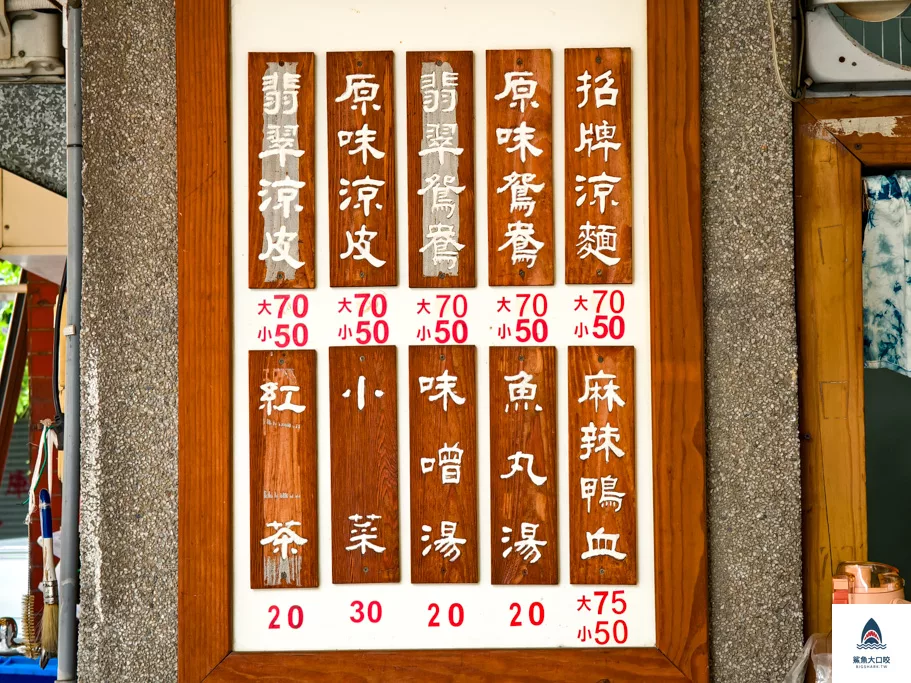 招牌涼麵
大70
小50
原味鴛鴦
大70
小50
翡翠鴛鴦
大70
小50
原味涼皮
大70
小50
翡翠涼皮
大70
小50
麻辣鴨血
大75
小50
魚丸湯
20
味噌湯
20
小菜
30
紅茶
20
鯊魚大口咬
BIGSHARK.TW